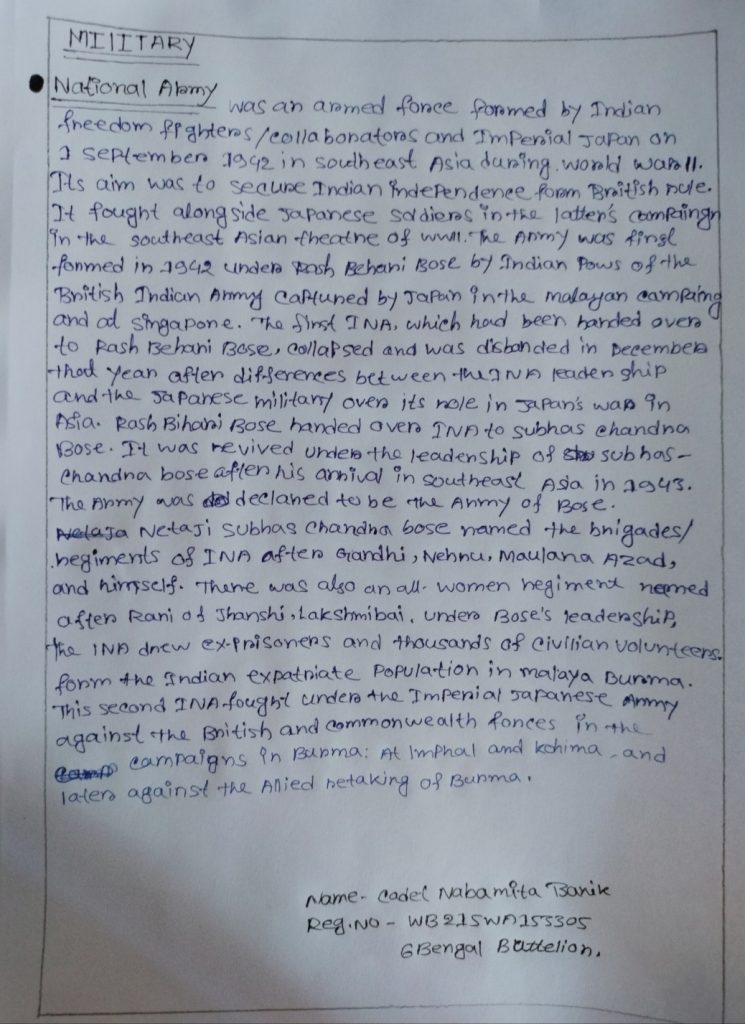 MILITARY
National Army was an armed force formed by Indian
freedom fighters/collaborators and Imperial Japan on
1 September 1942 in southeast Asia during world war II.
Its aim was to secure Indian independence form British rule.
It fought alongside Japanese soldiers in the latter's campaingn
in the southeast Asian theatre of WWII. The Army was first
formed in 1942 under Rash Behari Bose by Indian Pows of the
British Indian Army captured by Japan in the malayan campaing
and at singapore. The first INA, which had been handed over
to Rash Behari Bose, collapsed and was disbanded in December
that year after differences between the INA leadership
and the Japanese military over its role in Japan's war in
Asia. Rash Bihari Bose handed over INA to subhas chandra
Bose. It was revived under the leadership of subhas-
chandra bose after his arrival in southeast Asia in 1943.
The Army was declared to be the Army of Bose.
Netaji Subhas chandra bose named the brigades/
regiments of INA after Gandhi, Nehru, Maulana Azad,
and himself. There was also an all-women regiment named
after Rani of Jhanshi, Lakshmibai. under Bose's leadership,
the INA drew ex-prisoners and thousands of civilian volunteers
form the Indian expatriate population in malaya Burma.
This second INA fought under the Imperial Japanese Army
against the British and commonwealth forces in the
campaigns in Burma: At Imphal and kohima, and
later against the Allied retaking of Burma.
Name- Cadet Nabamita Banik
Reg.No - WB21SWA153305
6 Bengal Battelion.